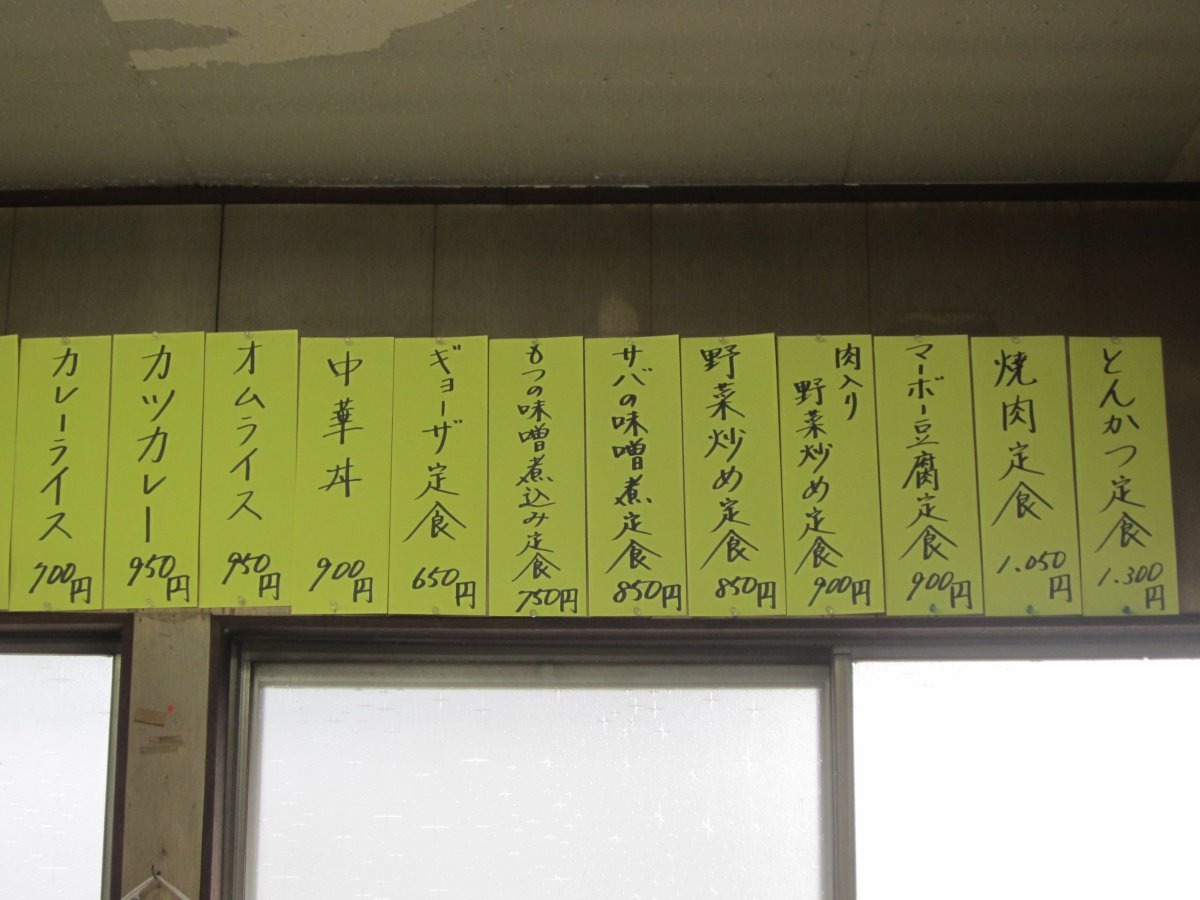 とんかつ定食
1.300円
焼肉定食
1.050円
マーボー豆腐定食
900円
肉入り
野菜炒め定食
900円
野菜炒め定食
850円
サバの味噌煮定食
850円
もつの味噌煮込み定食
750円
ギョーザ定食
650円
中華丼
900円
オムライス
950円
カツカレー
950円
カレーライス
700円